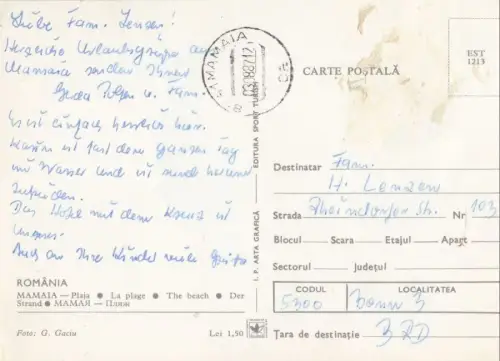 Liebe Fam. Lenzen!
Herzliche Urlaubsgrüße aus
Mamaia senden Ihnen
Fam.
Es ist einfach herrlich hier.
ist fast den ganzen Tag
im Wasser und ist rund herum
zufrieden.
Das Hotel mit dem Kreuz ist
unseres.
Auch an Ihre Kinder viele Grüße
ROMÂNIA
MAMAIA — Plaja ● La plage ● The beach ● Der
Strand ● МАМАЯ — Пляж
Foto: G. Gaciu
Lei 1,50
I. P. ARTA GRAFICĂ
EDITURA SPORT TURISM
MAMAIA
CARTE POȘTALĂ
EST
1213
Destinatar Fam.
H. Lenzen
Strada Rheindorfer Str. Nr 103
Blocul Scara Etajul Apart
Sectorul Județul
CODUL LOCALITATEA
5300 Bonn 3
Țara de destinație BRD